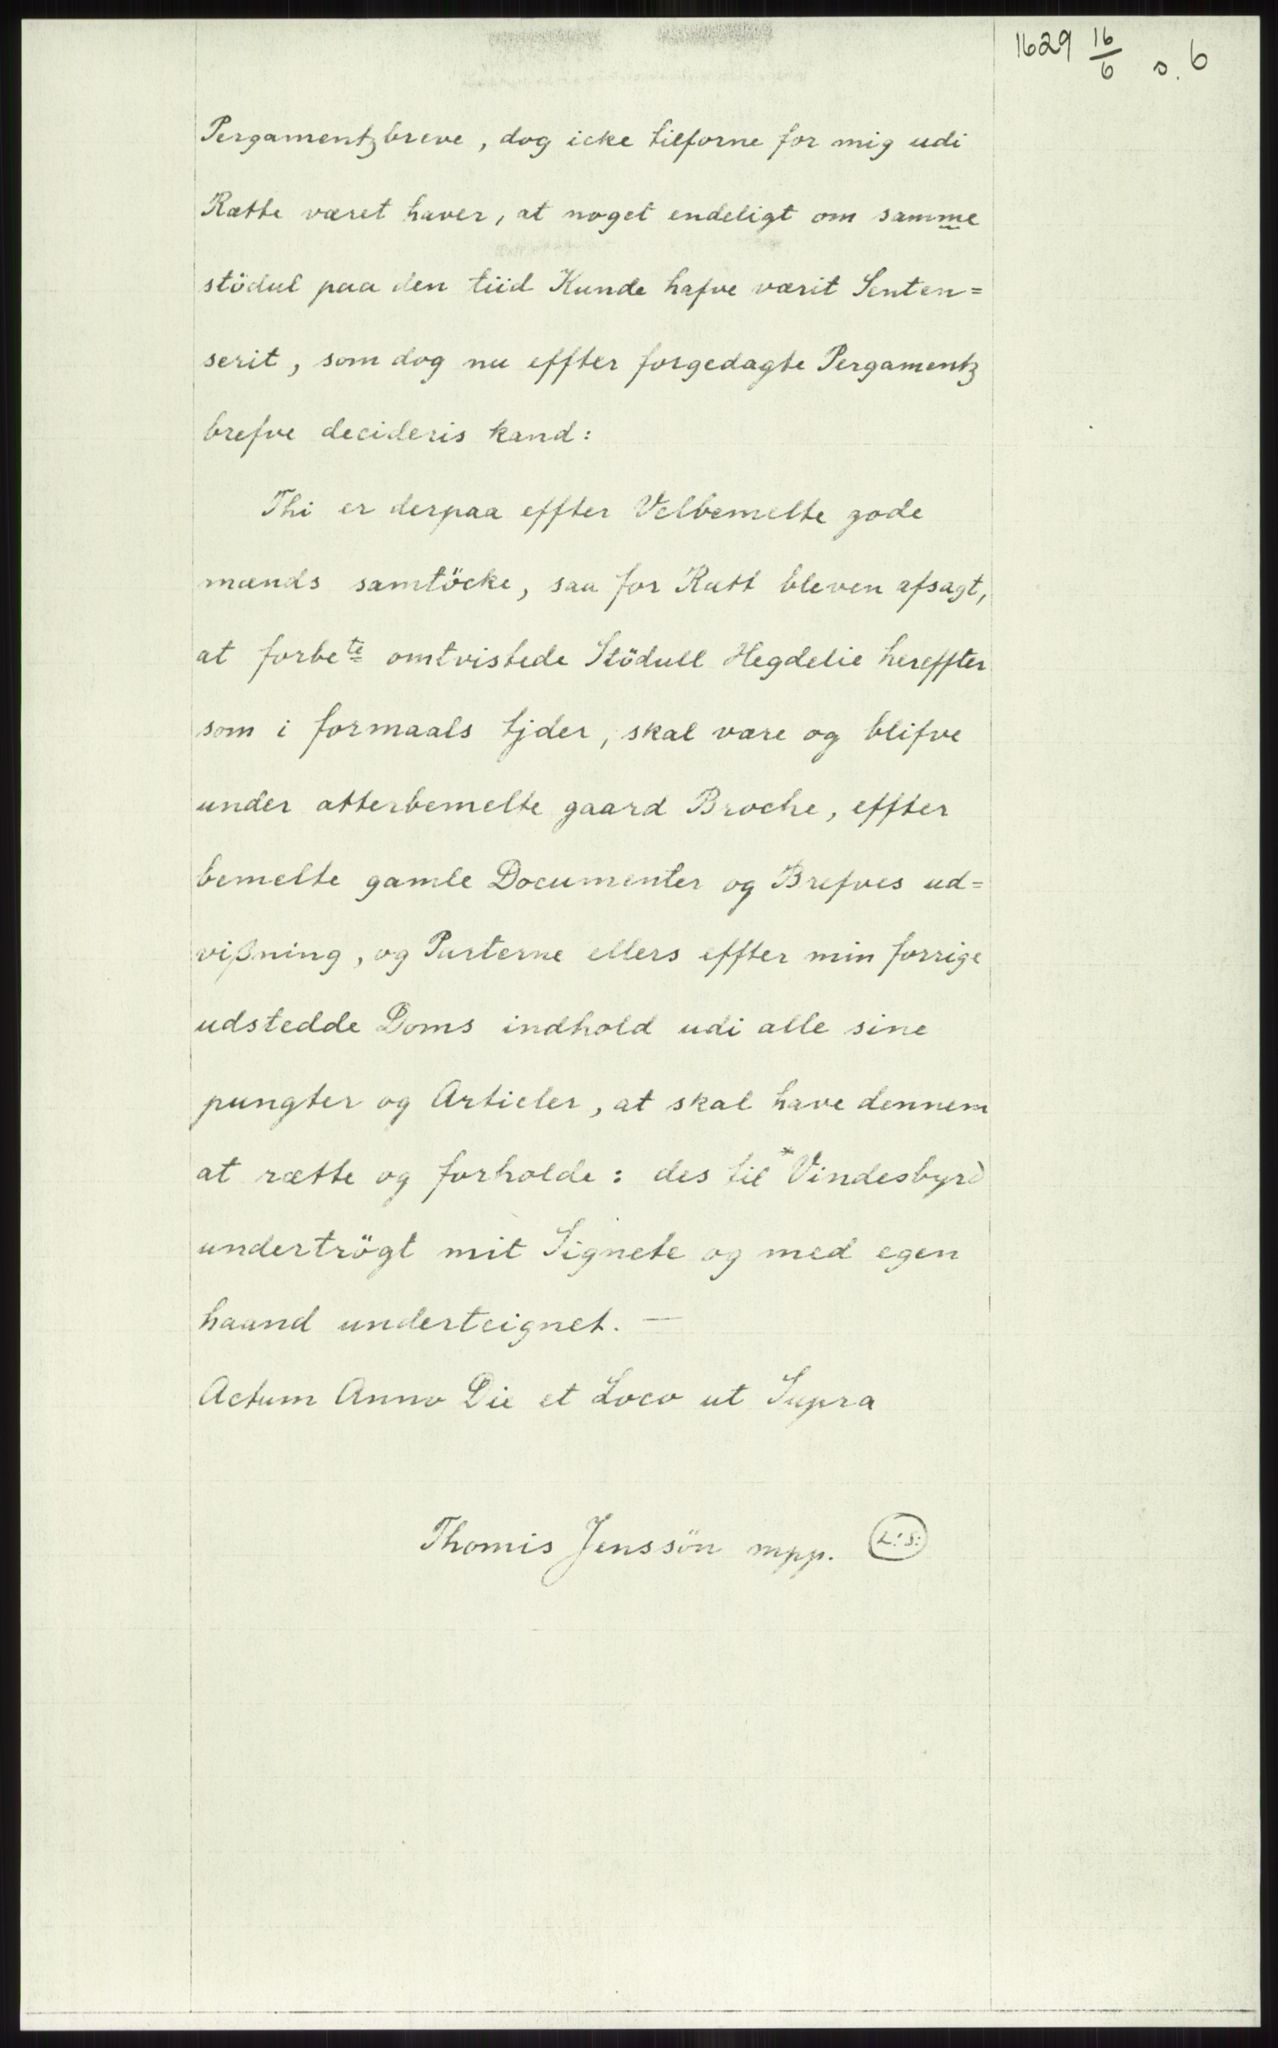 1629 16/6 s. 6
Pergamentzbreve, dog icke tilforne for mig udi
Rætte været haver, at noget endeligt om samme
stödul paa den tiid Kunde hafve værit Senten=
serit, som dog nu effter forgedagte Pergamentz
brefve decideris kand:
Thi er derpaa effter Velbemelte gode
mænds samtöcke, saa for Rætt bleven afsagt,
at forbete omtvistede Stödull Hegdelie hereffter
som i formaals tjder, skal være og blifve
under atterbemelte gaard Broche, effter
bemelte gamle Documenter og Brefves ud=
vißning, og Parterne ellers effter min forrige
udstedde Doms indhold udi alle sine
pungter og Articler, at skal have dennem
at rætte og forholde: des til *Vindesbyrd
undertrögt mit Signete og med egen
haand underteignet. —
Actum Anno Die et Loco ut Supra
Thomis Jenssön mpp. L:S: